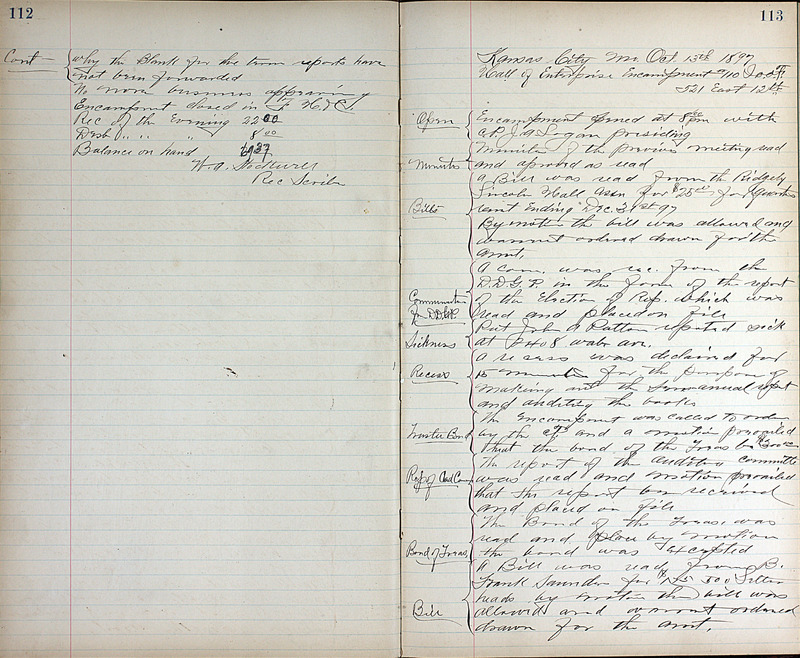 112
Cont
why the Blank for the term reports have
not been forwarded
No more business appearing
Encampment closed in F H & C
Rec of the Evening 22 00
Desb " " " 8 00
Balance on hand
W. A. Stockwell
Rec Scribe
113
Kansas City Mo. Oct 13th 1897
Hall of Enterprise Encampment #10 I.O.O.F.
521 East 12th
Open
Encampment opened at 8 pm with
C.P. J. A. Logan presiding
Minutes
Minutes of the previous meeting read
and aproved as read
Bills
a Bill was read from the Ridgely
Lincoln Hall Assn for $25 00 for Quarters
rent Ending Dec. 31st 97
By motion the bill was allowed and
warrant ordered drawn for the
amt.
Communication
fr D.D.G.P.
a com. was rec. from the
D.D.G.P. in the form of the report
of the Election of Rep. which was
read and placed on file
Sickness
Pat John A Patton reported sick
at 2408 wabs ave.
Recess
a recess was declared for
15 minutes for the purpose of
making out the semi annual report
and auditing the books
Trustee Bond
The Encampment was called to order
by the C.P. and a motion prevailed
that the bond of the Treas be
Rep of Aud Com
The report of the auditing committee
was read and motion prevailed
that the report be received
and placed on file
Bond of Treas,
The Bond of the Treas, was
read and place by motion
the bond was excepted
Bill
a Bill was read from B.
Frank Saunders for 500 Letter
heads by motion the bill was
allowed and warrant ordered
drawn for the amt.